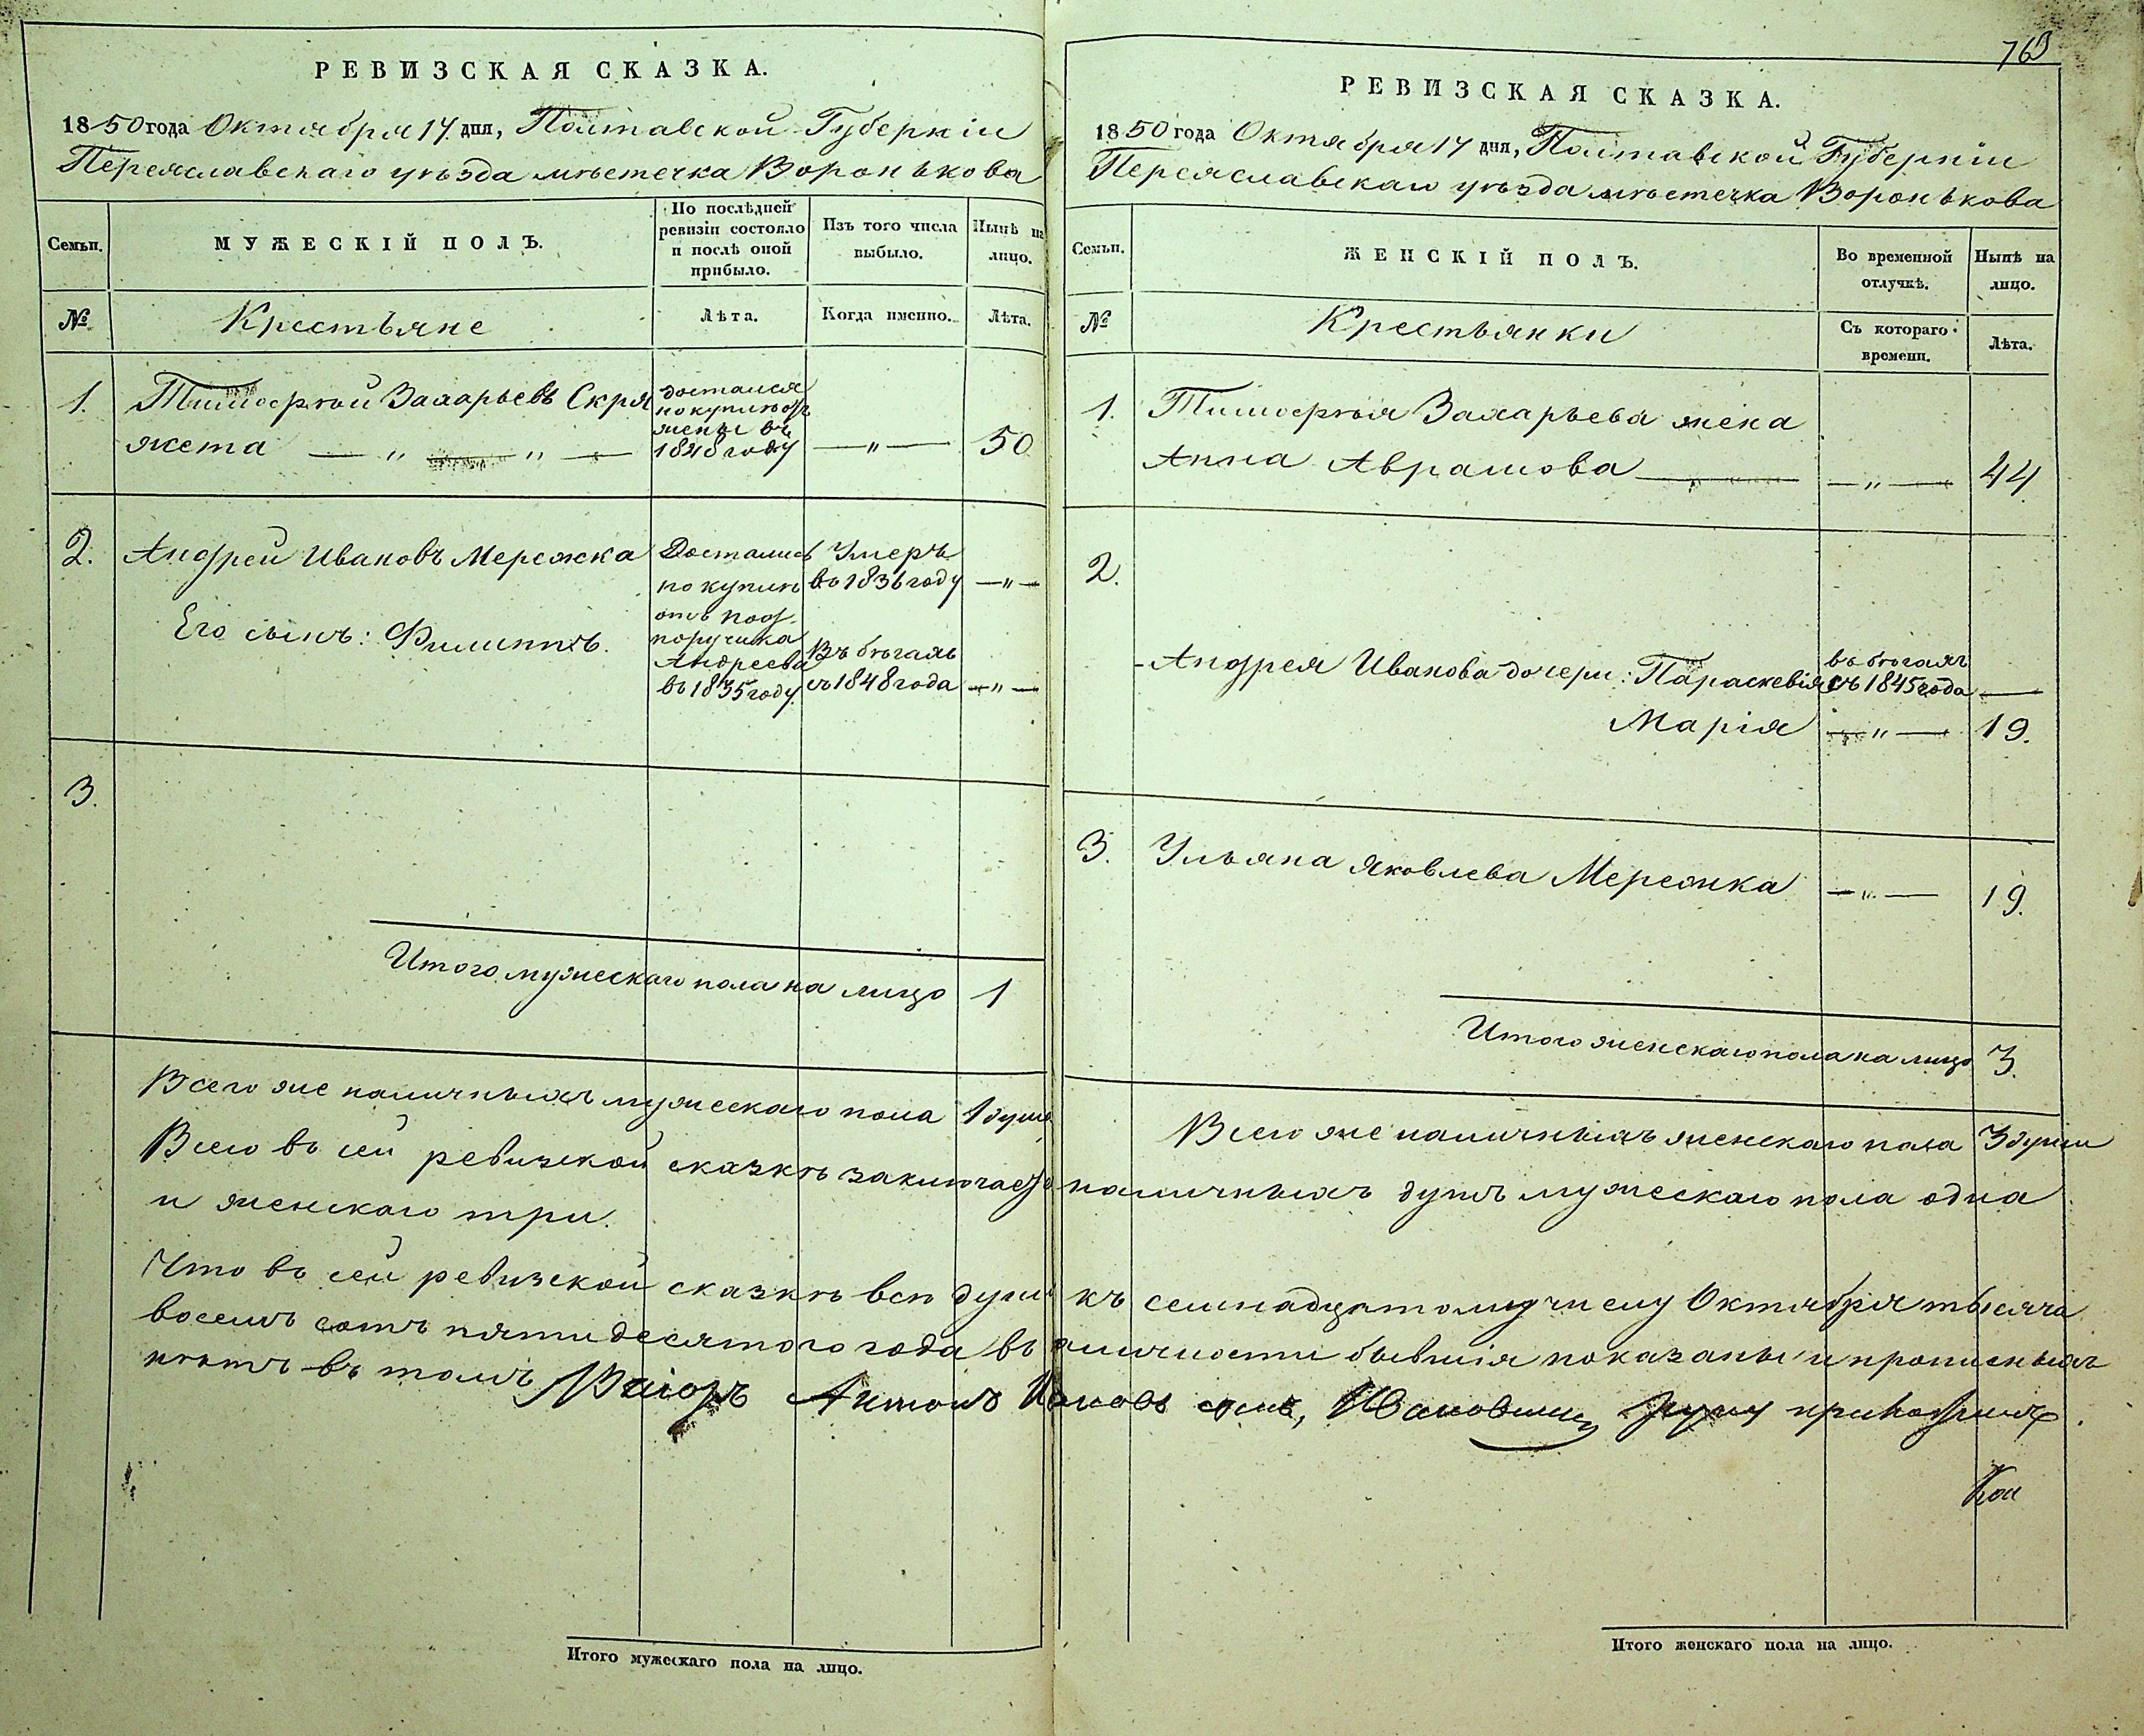 РЕВИЗСКАЯ СКАЗКА.
1850 года Октября 17 дня, Полтавской Губерніи
Переяславскаго уѣзда мѣстечка Воронькова
Семьи.
МУЖЕСКІЙ ПОЛЪ.
По послѣдней
ревизіи состояло
и послѣ оной
прибыло.
Изъ того числа
выбыло.
Нынѣ на
лицо.
№
Крестьяне
Лѣта.
Когда именно.
Лѣта.
1.
Тимофѣй Захарьевъ Скря
жета — „ — „ —
достался
по купчѣ отъ
жены въ
1848 году
— „ —
50
2.
Андрей Ивановъ Мережка
Его сынъ: Филиппъ.
Достались
по купчѣ
отъ под-
поручика
Андреева
въ 1835 году.
Умеръ
въ 1836 году
— „ —
Въ бѣгахъ
съ 1848 года
— „ —
3.
Итого мужескаго пола на лицо 1
Всего же наличныхъ мужескаго пола 1 душа
763
РЕВИЗСКАЯ СКАЗКА.
1850 года Октября 17 дня, Полтавской Губерніи
Переяславскаго уѣзда мѣстечка Воронькова
Семьи.
ЖЕНСКІЙ ПОЛЪ.
Во временной
отлучкѣ.
Нынѣ на
лицо.
№
Крестьянки
Съ котораго
времени.
Лѣта.
1.
Тимофѣя Захарьева жена
Анна Аврамова — — „ — 44
2.
Андрея Иванова дочери: Параскевія
въ бѣгахъ
съ 1845 года —
Марія — „ — 19.
3. Ульяна Яковлева Мережка — „ — 19.
Итого женскаго пола на лицо 3.
Всего же наличныхъ женскаго пола 3 души
Всего въ сей ревизской сказкѣ заключается наличныхъ душъ мужескаго пола одна
и женскаго три.
Что въ сей ревизской сказкѣ всѣ души къ семнадцатому числу Октября тысяча
восемъ сотъ пятидесятого года въ наличности бывшія показаны и прописныхъ
нѣтъ въ томъ Антонъ сынъ, руку приложилъ.
Итого мужескаго пола на лицо.
Итого женскаго пола на лицо.